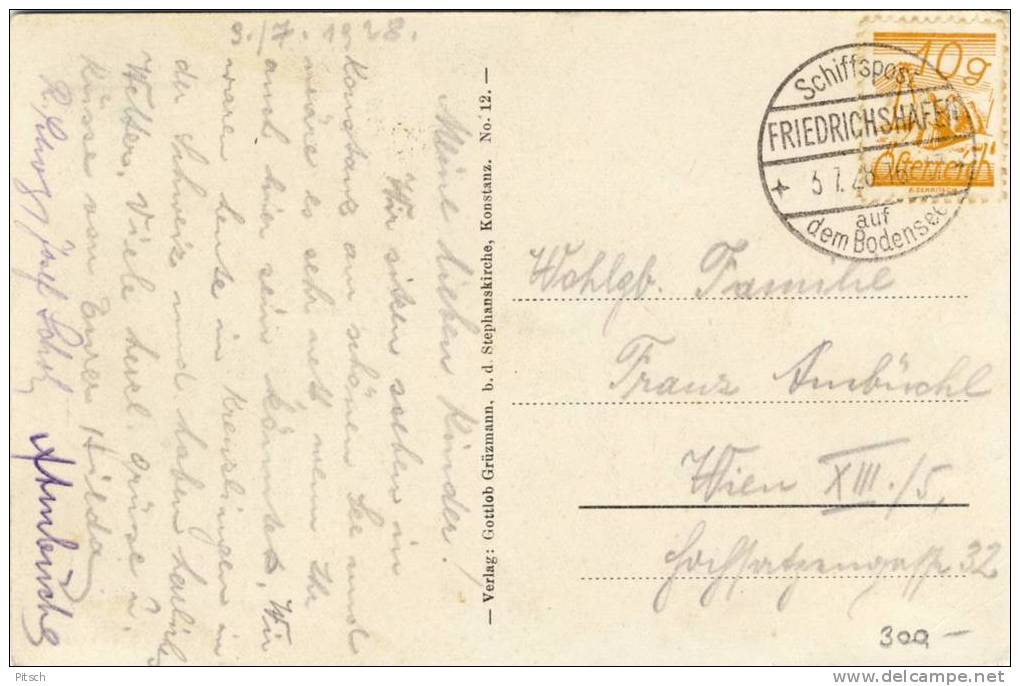 3./7. 1928.
Meine lieben Kinder!
Wir sitzen soeben in
Konstanz am schönen See und
wäre es sehr nett wenn Ihr
auch hier sein könntet. Wir
waren heute in Kreuzlingen in
der Schweiz und haben herrliches
Wetter. Viele herzl. Grüsse u.
Küsse von Eurer Hilda
Ambüchl
— Verlag: Gottlob Grüzmann, b. d. Stephanskirche, Konstanz. No. 12. —
10g
Österreich
Schiffspost
FRIEDRICHSHAFEN
3 7. 28 16
auf
dem Bodensee
Wohlgb. Familie
Franz Ambüchl
Wien XIII./5,
Hochsatzengasse 32
300,-
Pitsch
www.delcampe.net